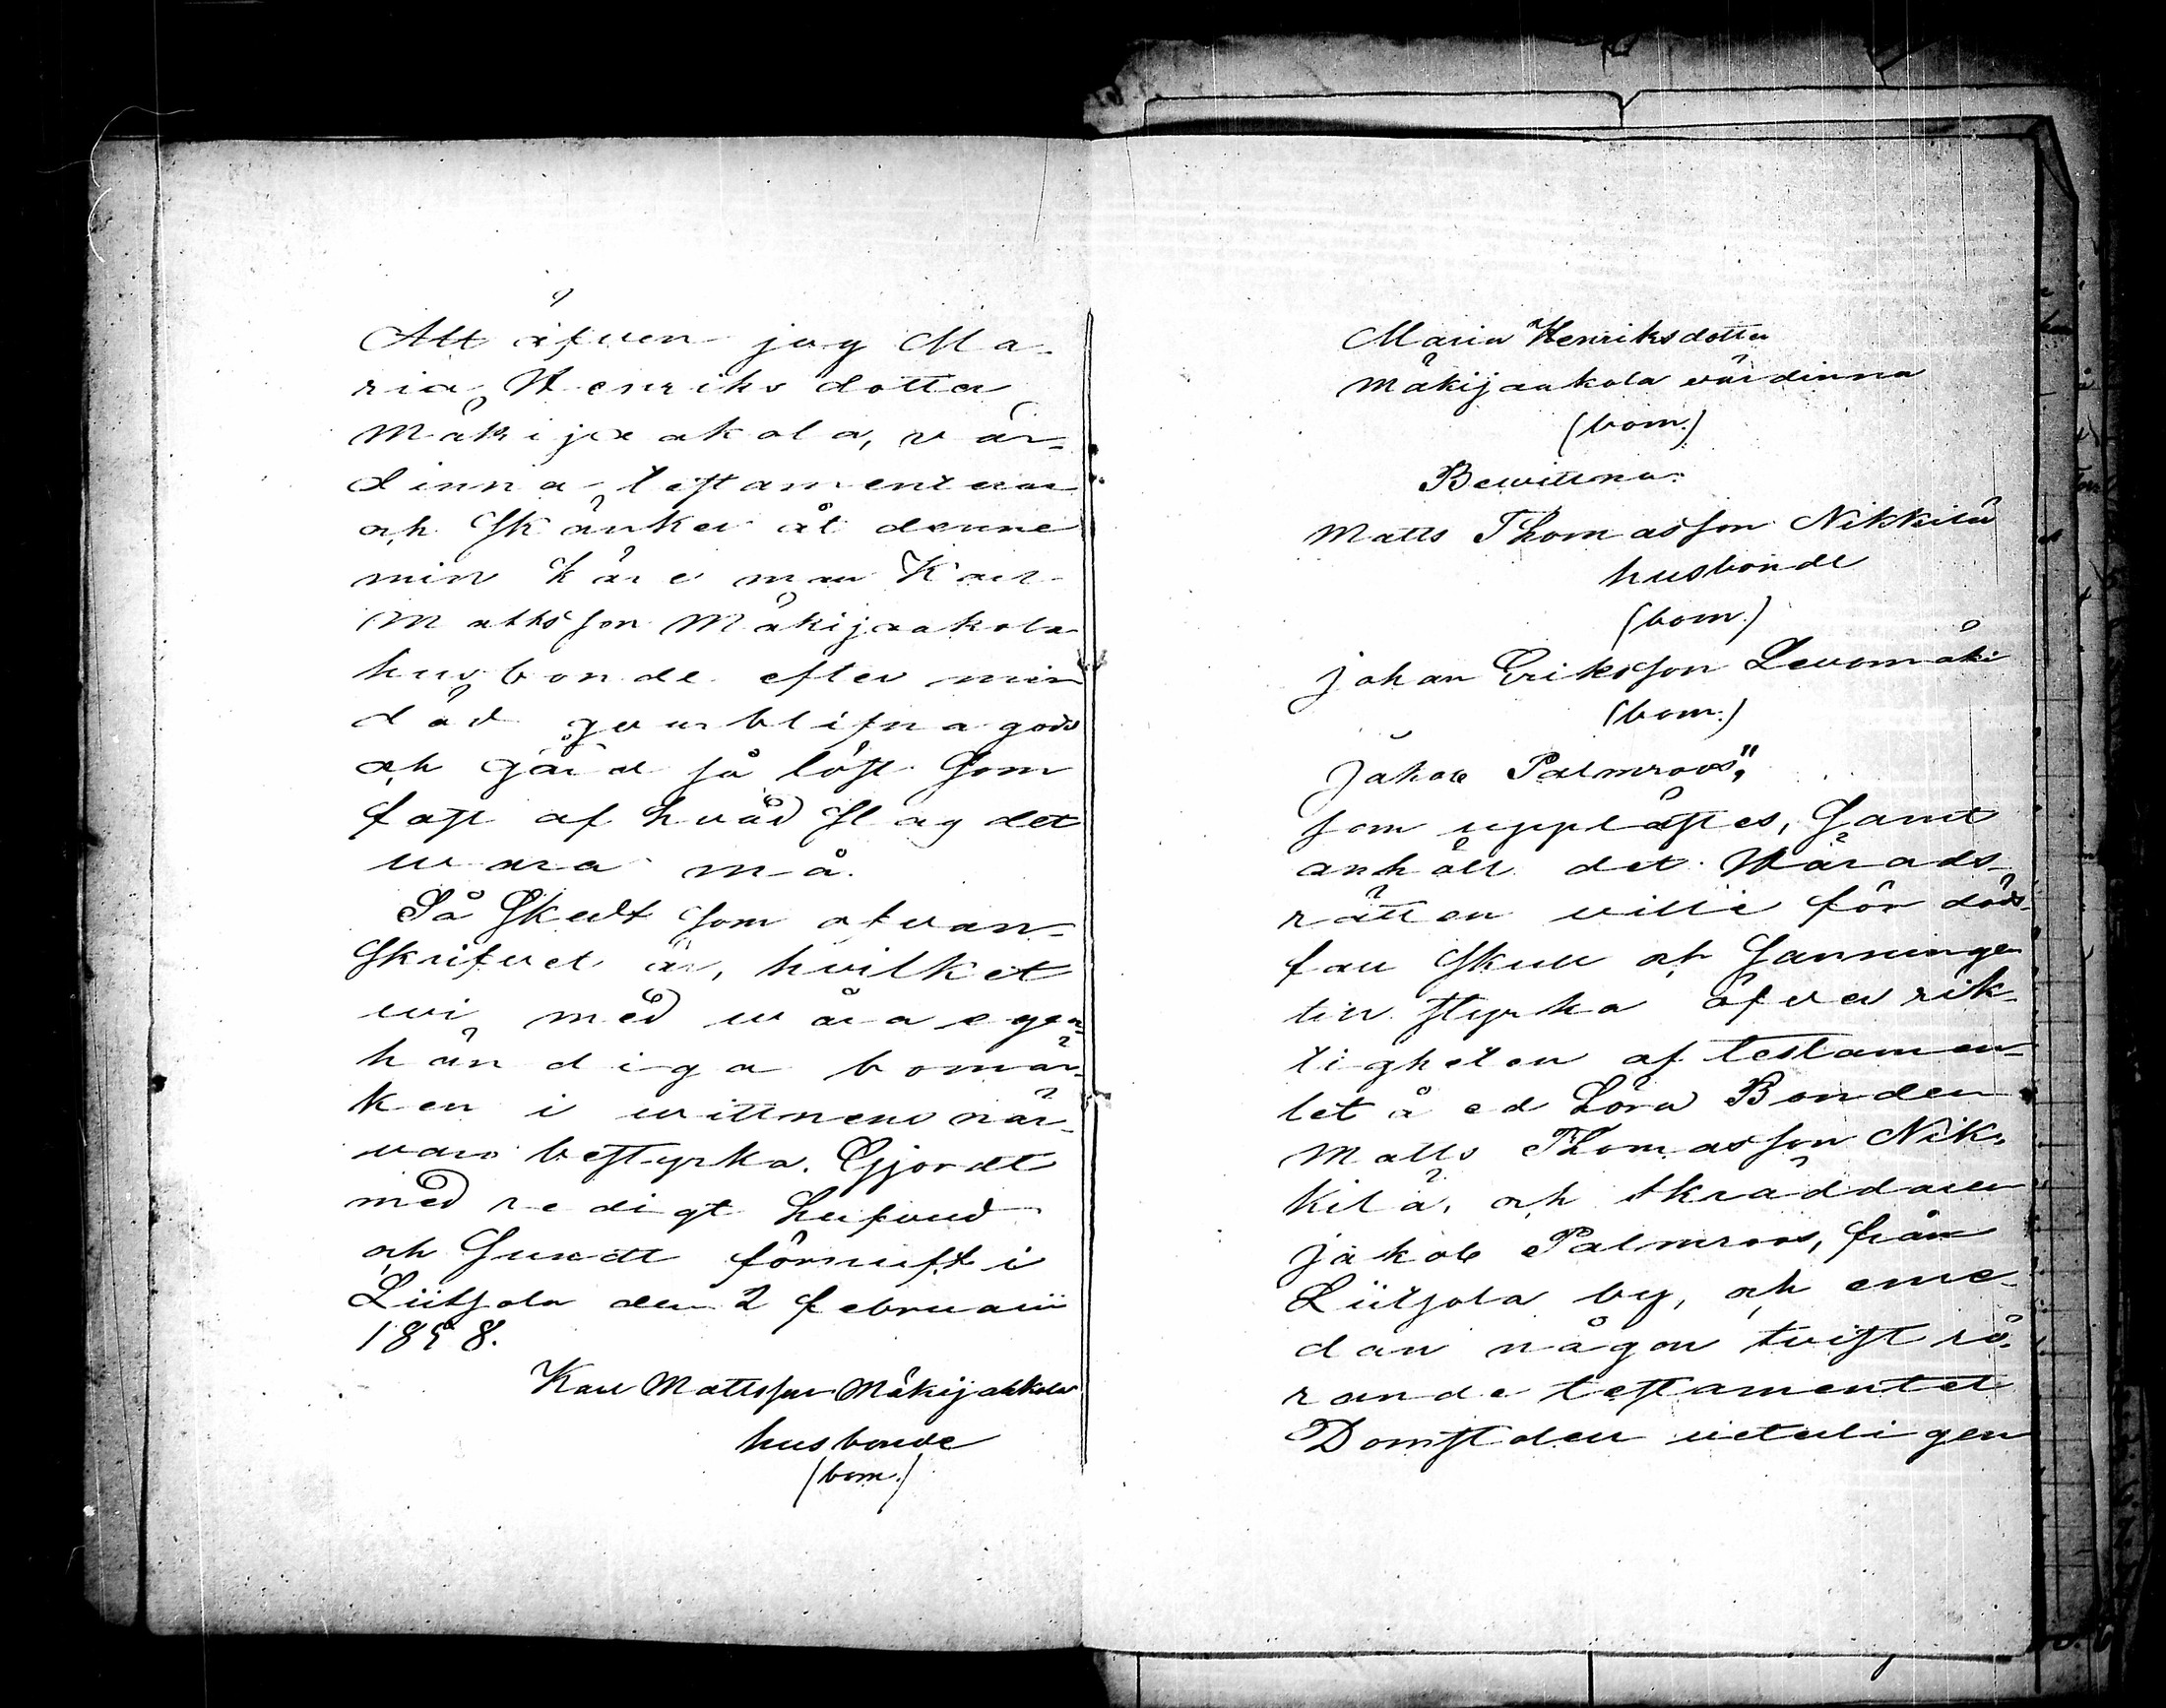 Att äfven jag Ma-
ria Henriks dotter
Mäkijaakola, vär-
dinna testamenterar
och skänker åt denne
min käre man Karl
Mattsson Mäkijaakola
husbonde efter min
död qvarblifna gods
och gård så löst som
fast af hvad slag det
wara må.
Så skedt som ofvan-
skrifvet är, hvilket
wi med wåra egen-
händiga bomär-
ken i wittnens när-
varo bestyrka. Gjordt
med redigt hufvud
och sundt förnuft i
Liitsola den 2 februarii
1898.
Karl Mattsson Mäkijahkola
husbonde
(bom.)
Maria Henriksdotter
Mäkijaakola värdinna
(bom.)
Bewittna:
Matts Thomasson Nikkilä
husbonde
(bom.)
Johan Eriksson Levomäki
(bom.)
Jakob Palmroos",
som upplästes, samt
anhöll det Härads-
rätten ville för döds-
fall skull och sanningen
till styrka öfver rik-
tigheten af testamen-
tet å ed höra Bonden
Matts Thomasson Nik-
kilä, och skräddaren
Jakob Palmroos, från
Liitsola by, och eme-
dan någon tvist rö-
rande testamentet
Domstolen veterligen